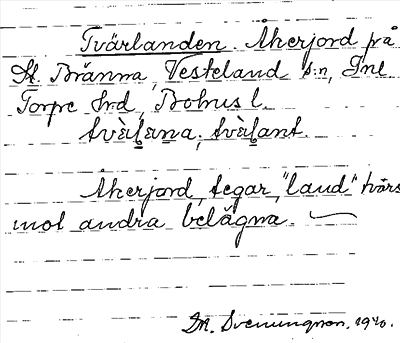 Tvärlanden. Åkerjord på
St. Bränna, Vesteland s:n, Inl.
Torpe Hrd, Bohusl.
Åkerjord, tegar, "land" tvärs
mot andra belägna.
M. Svenungsson. 1940.